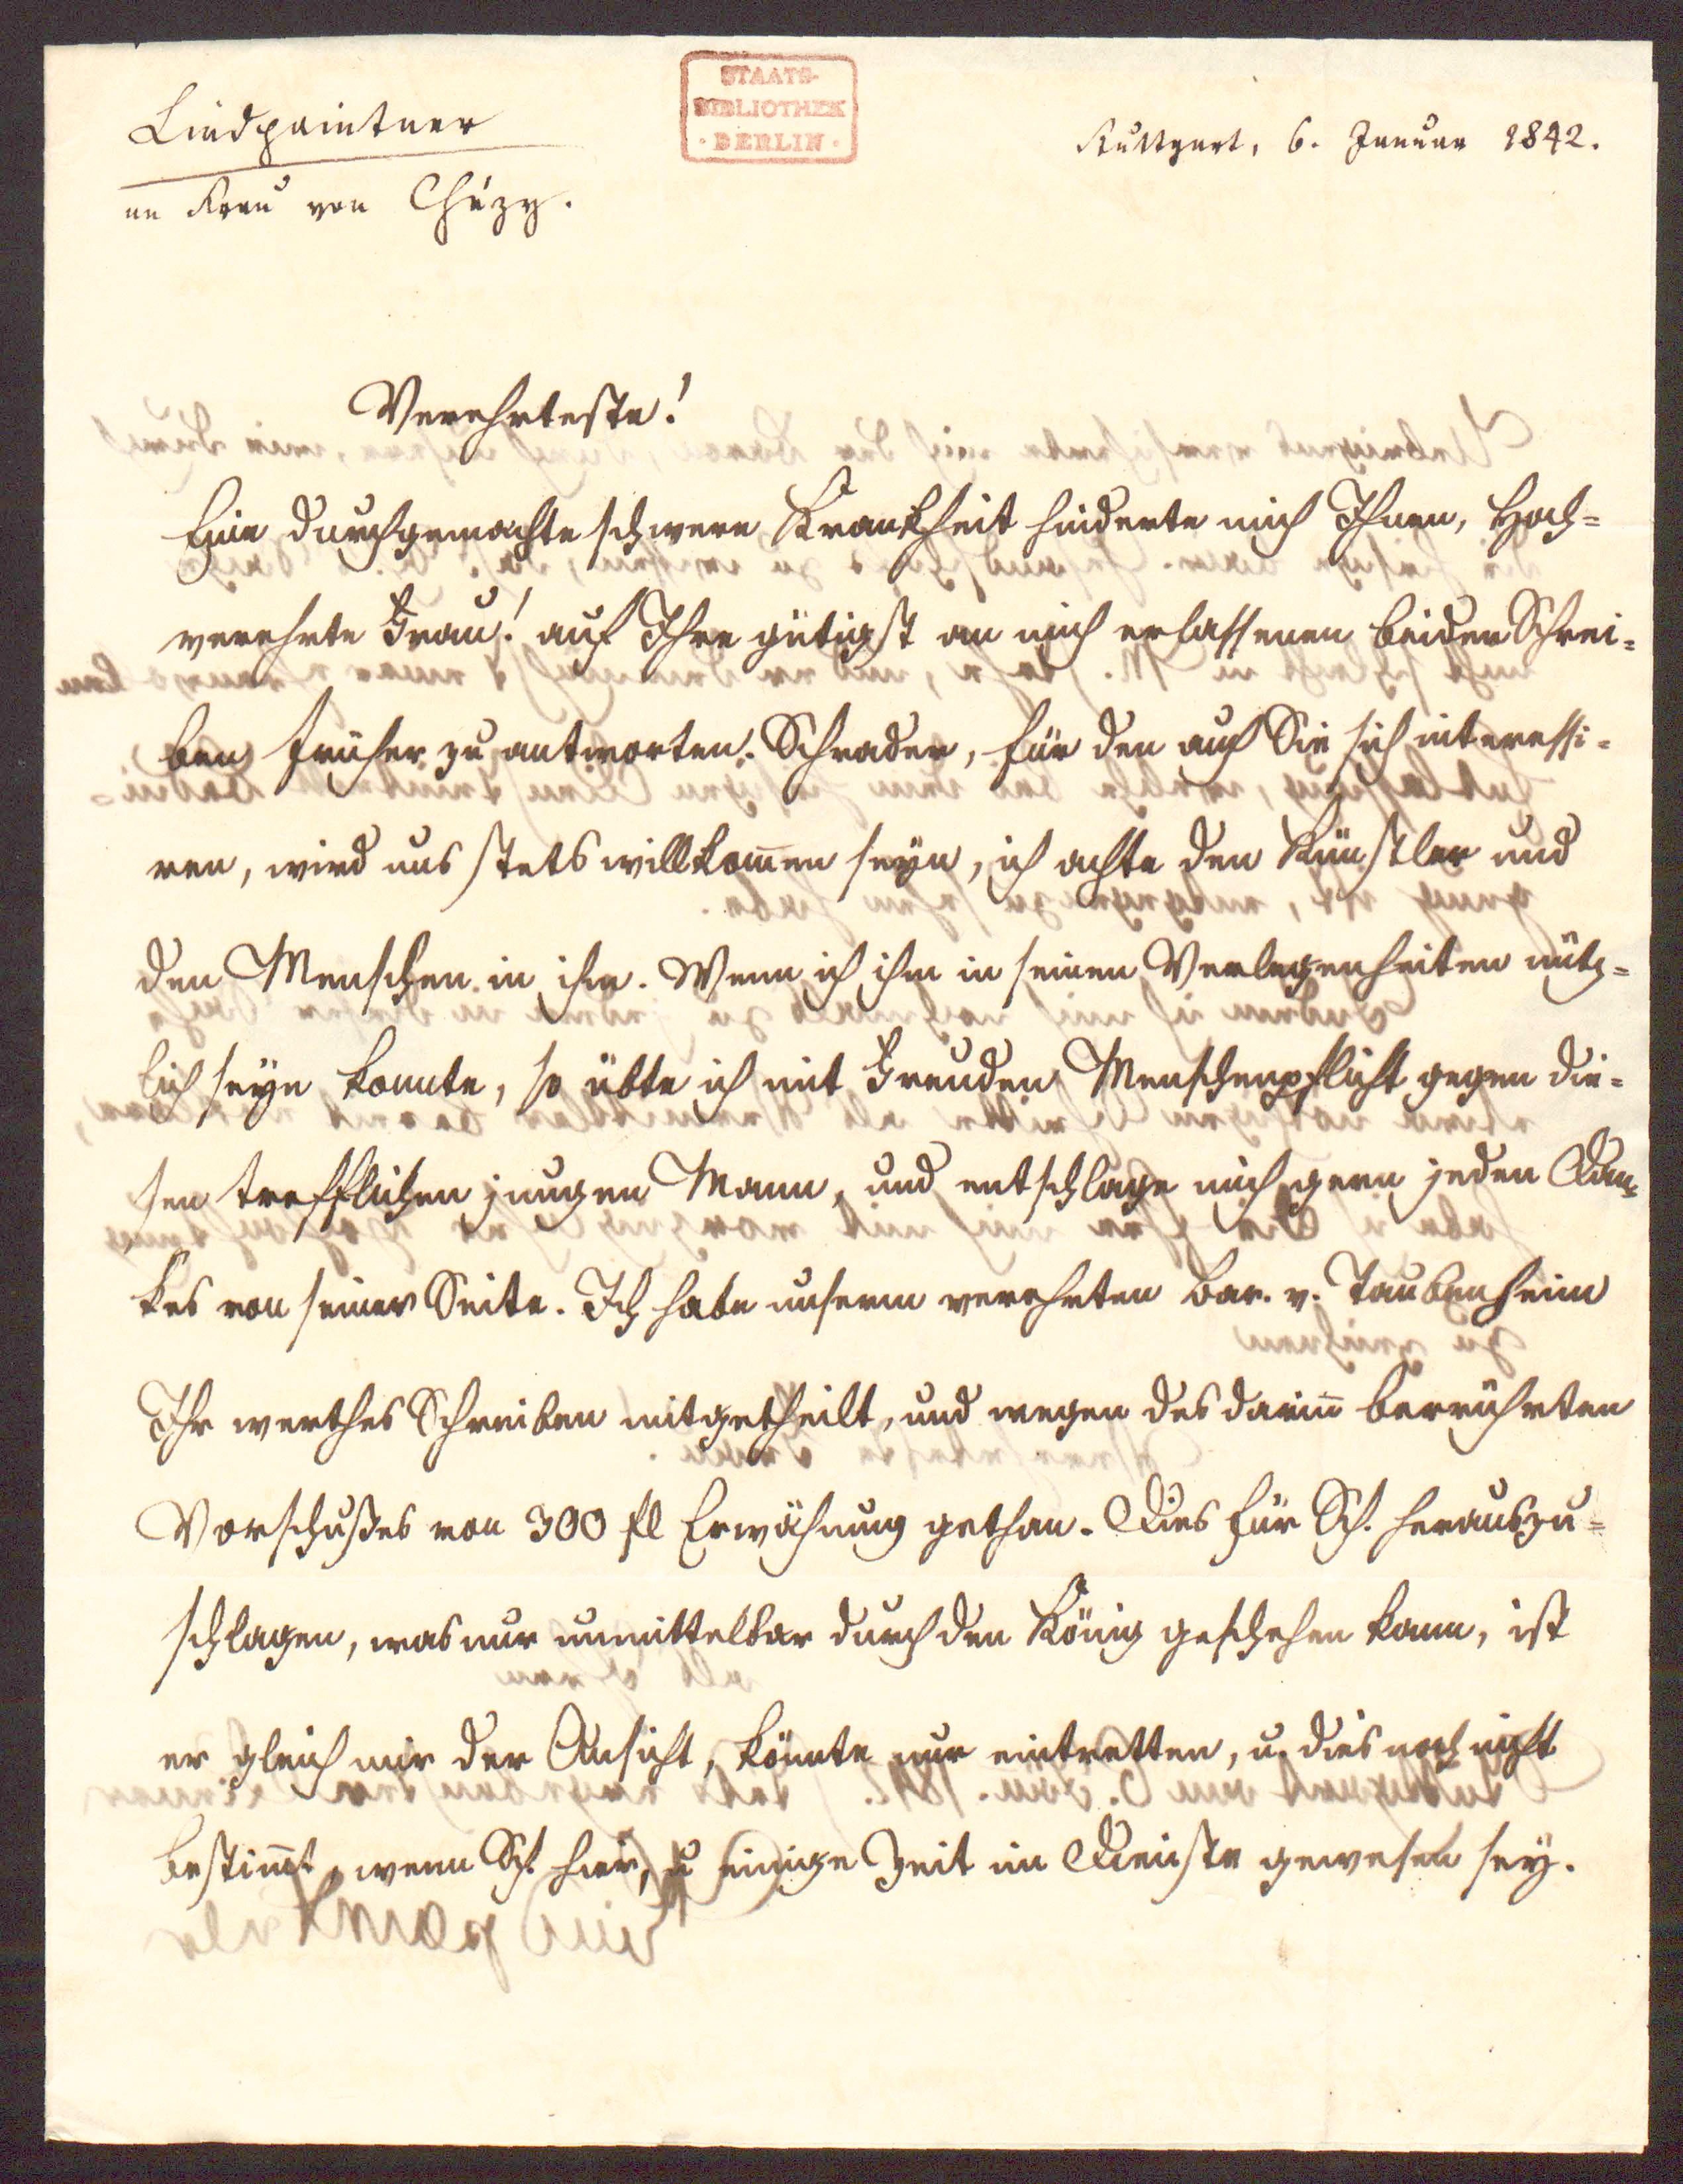 Lindpaintner
an Frau von Chézy.
STAATS-
BIBLIOTHEK
· BERLIN ·
Stuttgart, 6. Januar 1842.
Verehrteste!
Eine durchgemachte schwere Krankheit hinderte mich Ihnen, Hoch=
verehrte Frau! auf Ihre gütigst an mich erlassenen beiden Schrei=
ben früher zu antworten. Schrader, für den auch Sie sich interessi=
ren, wird uns stets willkom̅en seyn, ich achte den Künstler und
den Menschen in ihm. Wenn ich ihm in seinen Verlegenheiten nütz=
lich seyn konnte, so übte ich mit Freuden Menschenpflicht gegen die=
sen trefflichen jungen Mann, und entschlage mich gern jeden Dan=
kes von seiner Seite. Ich habe unserm verehrten Bar. v. Taubenheim
Ihr werthes Schreiben mitgetheilt, und wegen des darin̅ berrührten
Vorschußes von 300 fl Erwähnung gethan. Dies für Sch. herauszu=
schlagen, was nur unmittelbar durch den König geschehen kann, ist
er gleich mir der Ansicht, könnte nur eintretten, u. dies noch nicht
bestim̅t, wenn Sch. hier, u einige Zeit im Dienste gewesen sey.